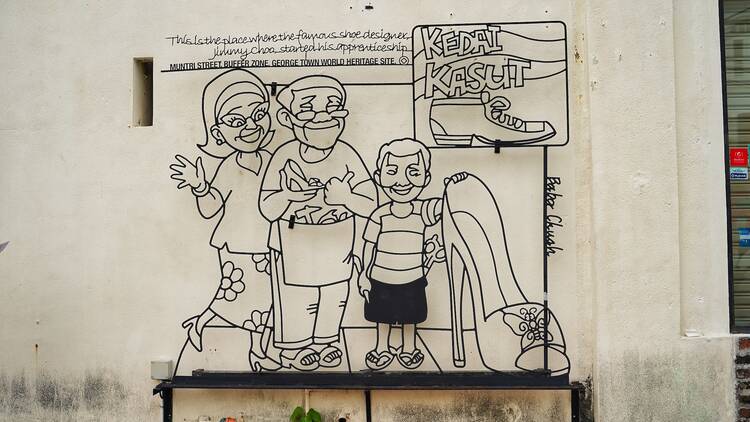 This is the place where the famous shoe designer,
Jimmy Choo, started his apprenticeship
MUNTRI STREET, BUFFER ZONE, GEORGE TOWN WORLD HERITAGE SITE.
KEDAI
KASUT